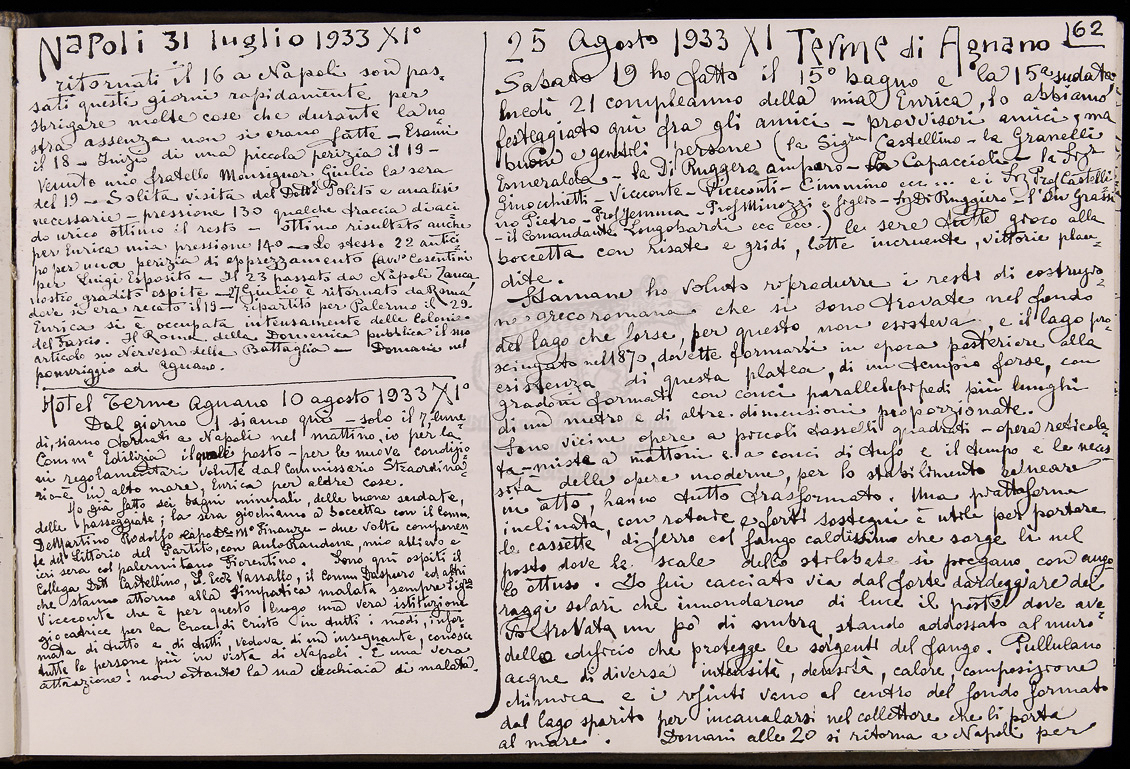 Napoli 31 luglio 1933 XI°
ritornati il 16 a Napoli son pas-
sati questi giorni rapidamente per
sbrigare molte cose che durante la no-
stra assenza non si erano fatte - Esami
il 18 - Inizio di una piccola perizia il 19 -
Venuto mio fratello Monsignor Giulio la sera
del 19 - Solita visita del Dott. Polito e analisi
necessarie - pressione 130 qualche traccia di aci-
do urico ottimo il resto - Ottimo risultato anche
per Enrica mia pressione 140 - Lo stesso 22 antici-
po per una perizia di apprezzamento Cosentini
per Luigi Esposito - Il 23 passato da Napoli Zanca
nostro gradito ospite - 27 Giulio è ritornato da Roma
dove si era recato il 19 - ripartito per Palermo il 29.
Enrica si è occupata intensamente delle Colonie
del Fascio. Il Roma della Domenica pubblica il suo
articolo su Nervesa della Battaglia - Domani nel
pomeriggio ad Agnano.
Hotel Terme Agnano 10 agosto 1933 XI°
Dal giorno 1 siamo qui - solo il 7, lune-
di, siamo tornati a Napoli nel mattino, io per la
Comm.e Edilizia il posto - per le nuove condizio
ni regolamentari volute dal Commissario Straordina-
rio e in alto mare, Enrica per altre cose.
Ho già fatto sei bagni minerali, delle buone sudate,
delle passeggiate; la sera giochiamo a boccetta con il Comm.
De Martino Rodolfo capo Do M° Finanze - due volte componen
te del Littorio del Partito, con Auto Randone, mio allievo e
ieri sera col palermitano Fiorentino. Sono qui ospiti il
Collega Dott Castellino, Vassallo, il Comm ed altri
che stanno attorno alla simpatica malata sempre Sig.na
Viceconte che è per questo luogo una vera istituzione
giocatrice per la Croce di Cristo in tutti i modi, infor
mata di tutto e di tutti, vedova di un insegnante, conosce
tutte le persone più in vista di Napoli. È una vera
attrazione! non ostante la sua vecchiaia di malata.
62
25 Agosto 1933 XI Terme di Agnano
Sabato 19 ho fatto il 15° bagno e la 15a sudata.
Lunedì 21 compleanno della mia Enrica, lo abbiamo
festeggiato qui fra gli amici - provvisori amici, ma
buone e gentili persone (la Sig.ra Castellino - la Granelli
Esmeralda - la Di Ruggero, - la Capacciola - la
Ginocchietti - Viceconte - Visconti - Cimmino ecc ... e i Prof Castelli-
no Pietro - Prof Jemma - Prof Minozzi e foglio - Di Ruggiero - l'On Grassi
- il Comandante Longobardi ecc ecc.) le sere tutte gioco alla
boccetta con risate e gridi, lotte incruente, vittorie plau-
dite.
Stamane ho voluto riprodurre i resti di costruzio
ne grecoromana che si sono trovate nel fondo
del lago che forse, per questo non esisteva, e il lago pro
sciugato nel 1870, dovette formarsi in epoca posteriore alla
esistenza di questa platea, di un tempio forse, con
gradoni formati con conci parallelepipedi più lunghi
di un metro e di altre dimensioni proporzionate.
Sono vicine opere a piccoli tasselli quadrati - opera reticola-
ta - miste a mattoni e a conci di tufo e il tempo e le neces-
sità delle opere moderne, per lo stabilimento
in atto, hanno tutto trasformato. Una piattaforma
inclinata, con rotaie, e forti sostegni è utile per portare
le cassette, di ferro col fango caldissimo che sorge lì nel
posto dove le scale dello stilobate si piegano con ango-
lo ottuso. Io fui cacciato via dal forte dardeggiare dei
raggi solari che innondarono di luce il posto dove ave
vo trovata un po' di ombra, stando addossato al muro
dello edificio che protegge le sorgenti del fango. Pullulano
acque di diversa intensità, densità, calore, composizione
chimica e i rifiuti vano al centro del fondo formato
dal lago sparito per incanalarsi nel collettore che li porta
al mare. Domani alle 20 si ritorna a Napoli per